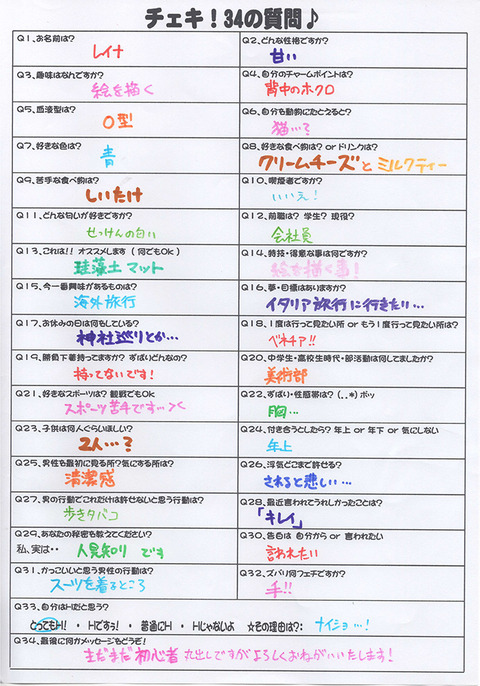 チェキ！34の質問♪
Q1、お名前は？
レイナ
Q2、どんな性格ですか？
甘い
Q3、趣味はなんですか？
絵を描く
Q4、自分のチャームポイントは？
背中のホクロ
Q5、血液型は？
O型
Q6、自分を動物にたとえると？
猫…？
Q7、好きな色は？
青
Q8、好きな食べ物は？orドリンクは？
クリームチーズとミルクティー
Q9、苦手な食べ物は？
しいたけ
Q10、喫煙者ですか？
いいえ！
Q11、どんな匂いが好きですか？
せっけんの匂い
Q12、前職は？ 学生？ 現役？
会社員
Q13、これは！！ オススメします（何でもOk）
珪藻土マット
Q14、特技・得意な事は何ですか？
絵を描く事！
Q15、今一番興味があるものは？
海外旅行
Q16、夢・目標はありますか？
イタリア旅行に行きたい…
Q17、お休みの日は何をしている？
神社巡りとか…
Q18、1度は行って見たい所 or もう1度行って見たい所は？
ベネチア！！
Q19、勝負下着持ってますか？ ずばりどんなの？
持ってないです！
Q20、中学生・高校生時代・部活動は何してましたか？
美術部
Q21、好きなスポーツは？ 観戦でもOK
スポーツ苦手です…><
Q22、ずばり・性感帯は？（．．＊）ポッ
胸…
Q23、子供は何人ぐらいほしい？
2人…？
Q24、付き合うとしたら？ 年上 or 年下 or 気にしない
年上
Q25、男性を最初に見る所？気にする所は？
清潔感
Q26、浮気どこまで許せる？
されると悲しい…
Q27、男の行動でこれだけは許せないと思う行動は？
歩きタバコ
Q28、最近言われてうれしかったことは？
「キレイ」
Q29、あなたの秘密を教えてください？
私、実は‥ 人見知り です
Q30、告白は 自分から or 言われたい
言われたい
Q31、かっこいいと思う男性の行動は？
スーツを着るところ
Q32、ズバリ何フェチですか？
手！！
Q33、自分はHだと思う？
とってもH！ ・ Hですぅ！ ・ 普通にH ・ Hじゃないよ ☆その理由は？： ナイショ…！
Q34、最後に何かメッセージをどうぞ！
まだまだ初心者 丸出しですがよろしくおねがいいたします！